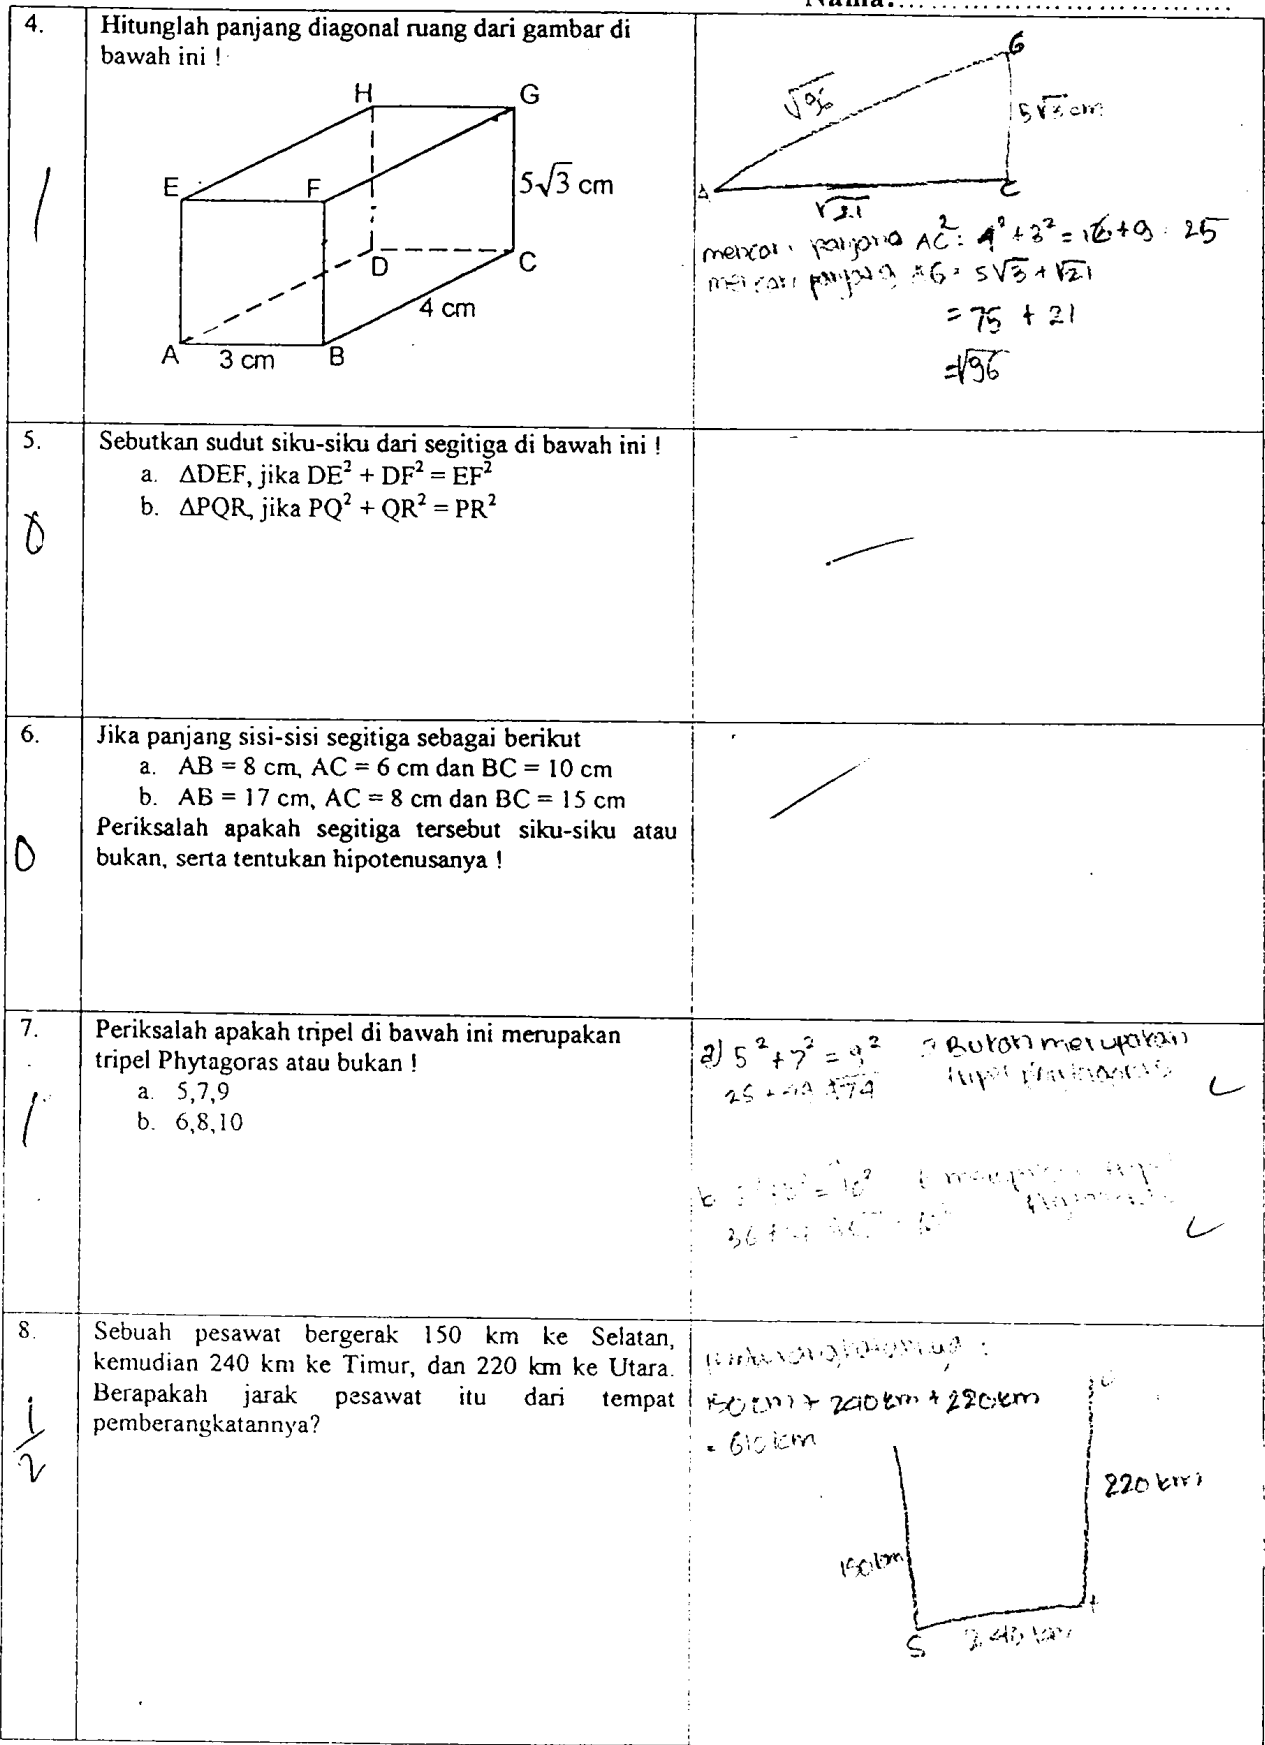 Nama:
4.
Hitunglah panjang diagonal ruang dari gambar di
bawah ini !
H
G
E
F
5√3 cm
D
C
4 cm
A
3 cm
B
1
G
√96
5√3 cm
A
C
√21
mencari panjang AC² = 4² + 3² = 16 + 9 = 25
mencari panjang AG = 5√3 + √21
= 75 + 21
= √96
5.
Sebutkan sudut siku-siku dari segitiga di bawah ini !
a. ΔDEF, jika DE² + DF² = EF²
b. ΔPQR, jika PQ² + QR² = PR²
0
6.
Jika panjang sisi-sisi segitiga sebagai berikut
a. AB = 8 cm, AC = 6 cm dan BC = 10 cm
b. AB = 17 cm, AC = 8 cm dan BC = 15 cm
Periksalah apakah segitiga tersebut siku-siku atau
bukan, serta tentukan hipotenusanya !
0
7.
Periksalah apakah tripel di bawah ini merupakan
tripel Phytagoras atau bukan !
a. 5,7,9
b. 6,8,10
1
a) 5² + 7² = 9² Bukan merupakan
25 + 49 √74 tripel
b = 10²
36 +
8.
Sebuah pesawat bergerak 150 km ke Selatan,
kemudian 240 km ke Timur, dan 220 km ke Utara.
Berapakah jarak pesawat itu dari tempat
pemberangkatannya?
1/2
150 km + 240 km + 220 km
= 610 km
220 km
150 km
S
240 km